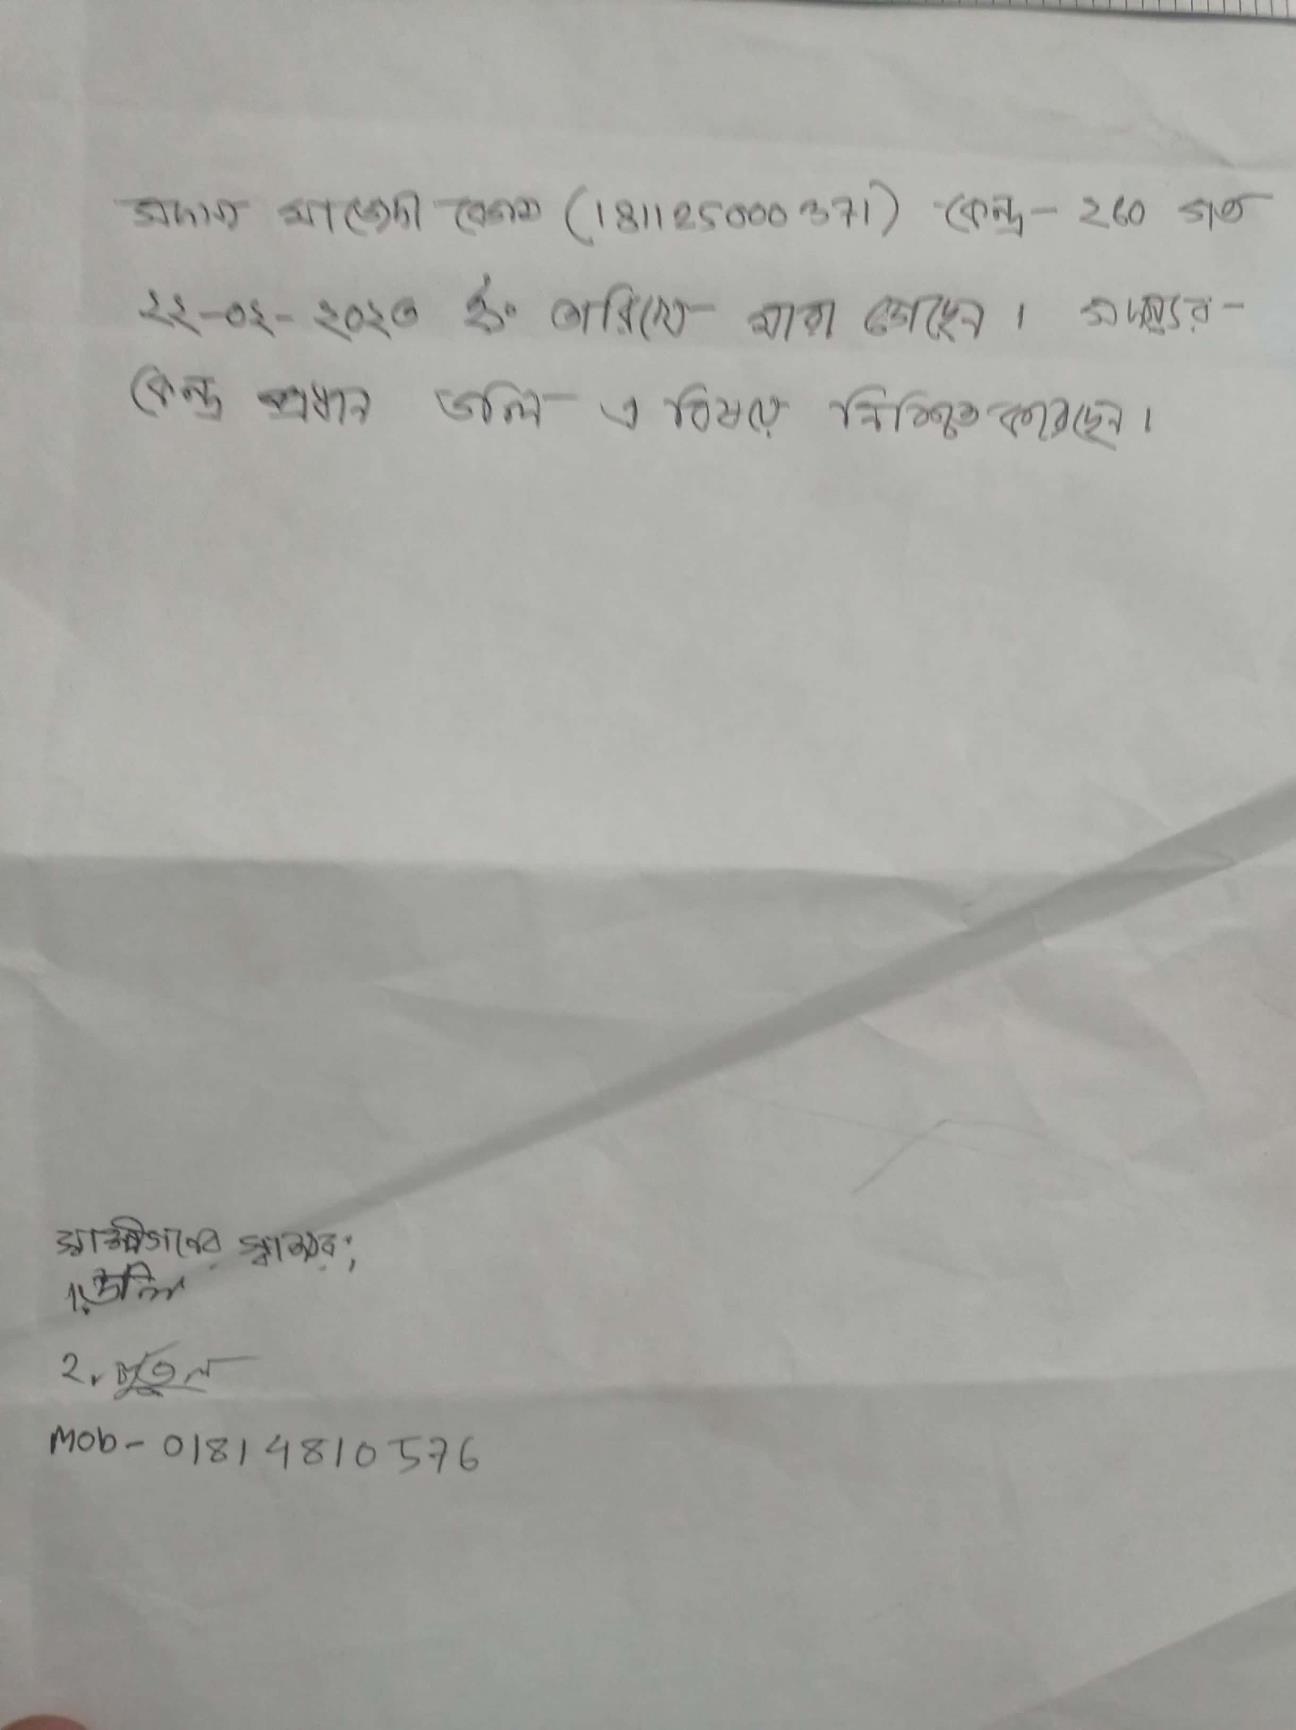 সদস্য মাজেদা বেগম (181125000371) কেন্দ্র - 260 গত
২২-০২-২০২৩ ইং তারিখে মারা গেছেন। সদস্যের
কেন্দ্র প্রধান ডলি এ বিষয়ে নিশ্চিত করেছেন।
স্বাক্ষীগনের স্বাক্ষর;
1. ডলি
2.
Mob - 01814810576